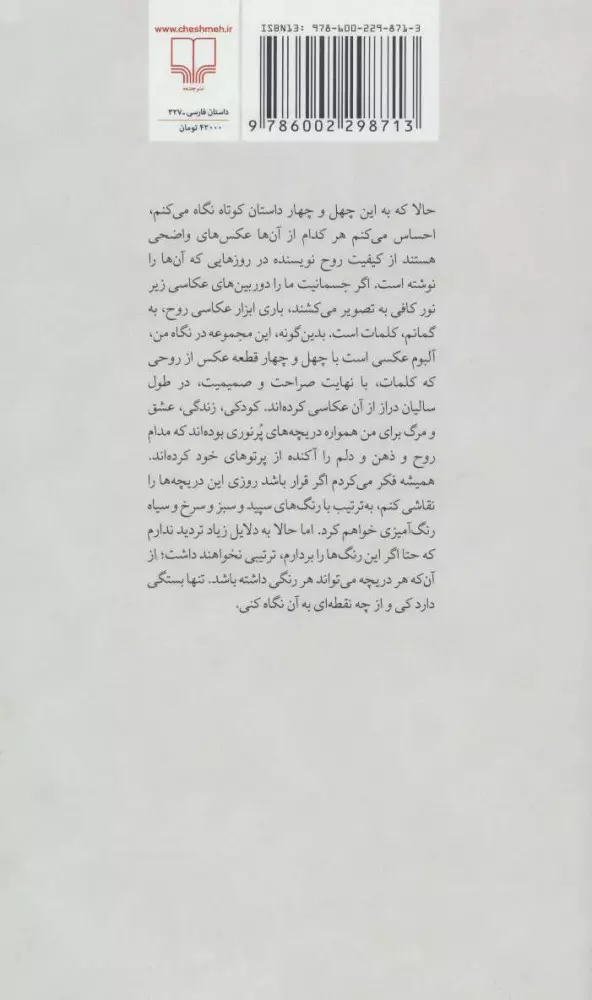 www.cheshmeh.ir
نشرچشمه
داستان فارسی ـ ۲۲۷
۴۲۰۰۰ تومان
ISBN13: 978-600-229-871-3
9 786002 298713
حالا که به این چهل و چهار داستان کوتاه نگاه می‌کنم،
احساس می‌کنم هر کدام از آن‌ها عکس‌های واضحی
هستند از کیفیت روح نویسنده در روزهایی که آن‌ها را
نوشته است. اگر جسمانیت ما را دوربین‌های عکاسی زیر
نور کافی به تصویر می‌کشند، باری ابزار عکاسی روح، به
گمانم، کلمات است. بدین‌گونه، این مجموعه در نگاه من،
آلبوم عکسی است با چهل و چهار قطعه عکس از روحی
که کلمات، با نهایت صراحت و صمیمیت، در طول
سالیان دراز از آن عکاسی کرده‌اند. کودکی، زندگی، عشق
و مرگ برای من همواره دریچه‌های پُرنوری بوده‌اند که مدام
روح و ذهن و دلم را آکنده از پرتوهای خود کرده‌اند.
همیشه فکر می‌کردم اگر قرار باشد روزی این دریچه‌ها را
نقاشی کنم، به‌ترتیب با رنگ‌های سپید و سبز و سرخ و سیاه
رنگ‌آمیزی خواهم کرد. اما حالا به دلایل زیاد تردید ندارم
که حتا اگر این رنگ‌ها را بردارم، ترتیبی نخواهند داشت؛ از
آن‌که هر دریچه می‌تواند هر رنگی داشته باشد. تنها بستگی
دارد کی و از چه نقطه‌ای به آن نگاه کنی.